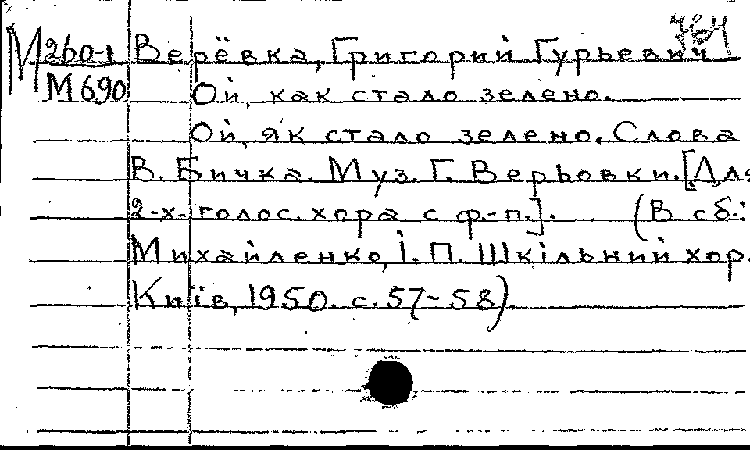 764
М 260-1 Верёвка, Григорий Гурьевич
М 690 Ой, как стало зелено.
Ой, як стало зелено. Слова
В. Бичка. Муз. Г. Верьовки. [Для
2-х. голос. хора с ф.-п.]. (В сб.:
Михайленко, І. П. Шкільний хор.
Київ, 1950. с. 57-58)